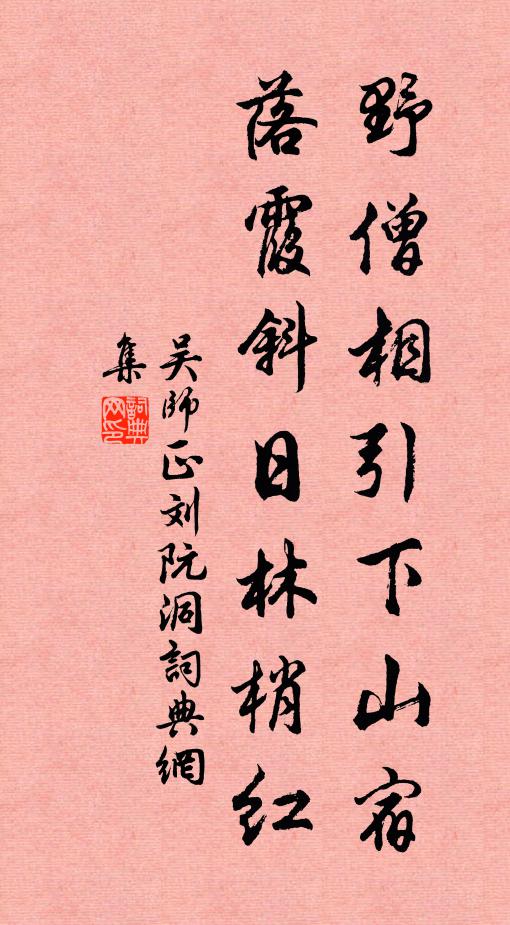 野僧相引下山宿
落霞斜日林梢红
吴師正刘阮洞詞典網
集
詞典網印